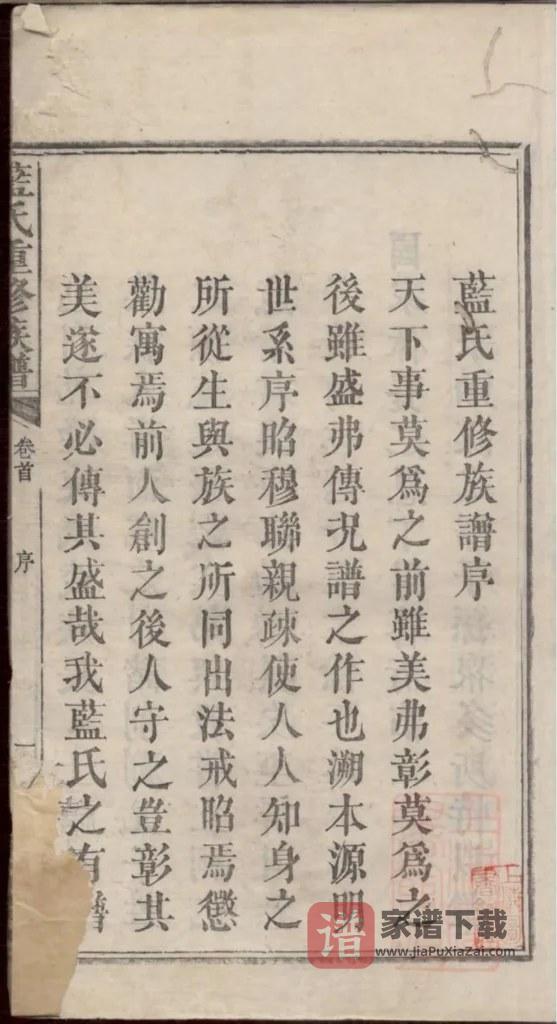 藍氏重修族譜序
天下事莫爲之前雖美弗彰莫爲之
後雖盛弗傳況譜之作也溯本源明
世系序昭穆聯親疎使人人知身之
所從生與族之所同出法戒昭焉懲
勸寓焉前人創之後人守之豈彰其
美遂不必傳其盛哉我藍氏之有譜
藍氏重修族譜
卷首
序
一
谱
家谱下载
www.jiaPuXiaZai.com